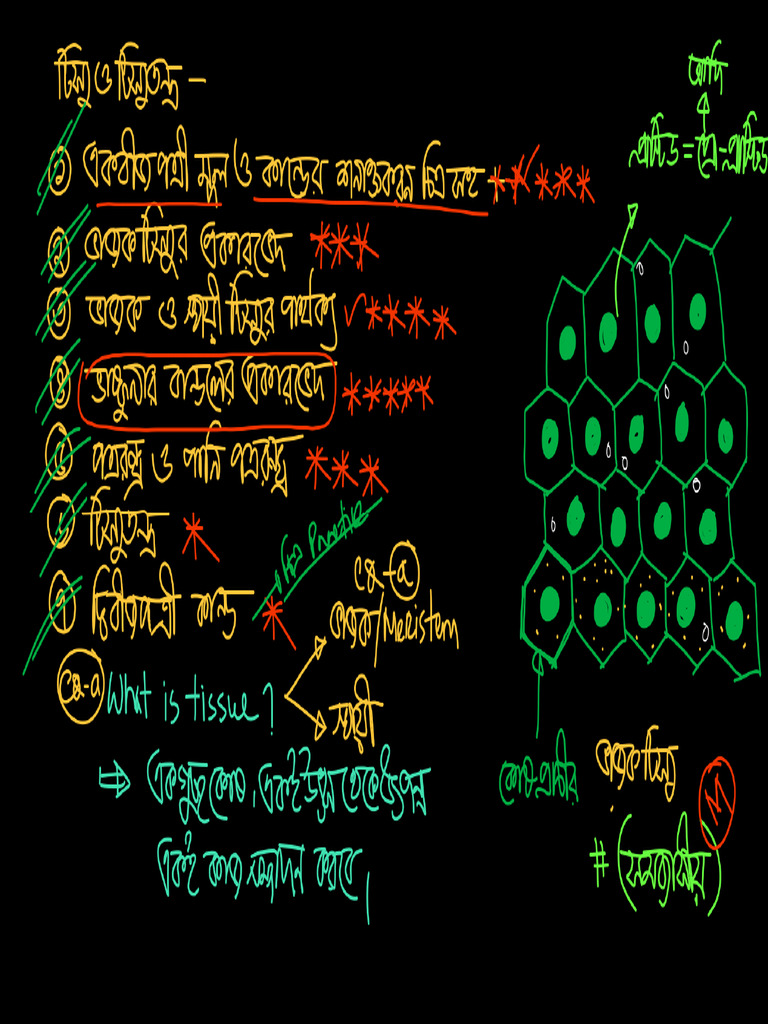 টিস্যু ও টিস্যুতন্ত্র -
১ একবীজপত্রী মূল ও কান্ডের শনাক্তকরন চিত্র সহ -
২ ভাজক টিস্যুর প্রকারভেদ
৩ ভাজক ও স্থায়ী টিস্যুর পার্থক্য
৪ ভাস্কুলার বান্ডলের প্রকারভেদ
৫ পত্ররন্ধ্র ও পানি পত্ররন্ধ্র
৬ টিস্যুতন্ত্র
৭ দ্বিবীজপত্রী কান্ড
Practice
What is tissue?
ভাজক/Meristem
স্থায়ী
⇒ একগুচ্ছ কোষ, একই উৎস থেকে উৎপন্ন
একই কাজ সম্পাদন করবে।
আদি
প্লাস্টিড = প্রো-প্লাস্টিড
কোষ প্রাচীর
ভাজক টিস্যু
M
# (সমব্যাসীয়)